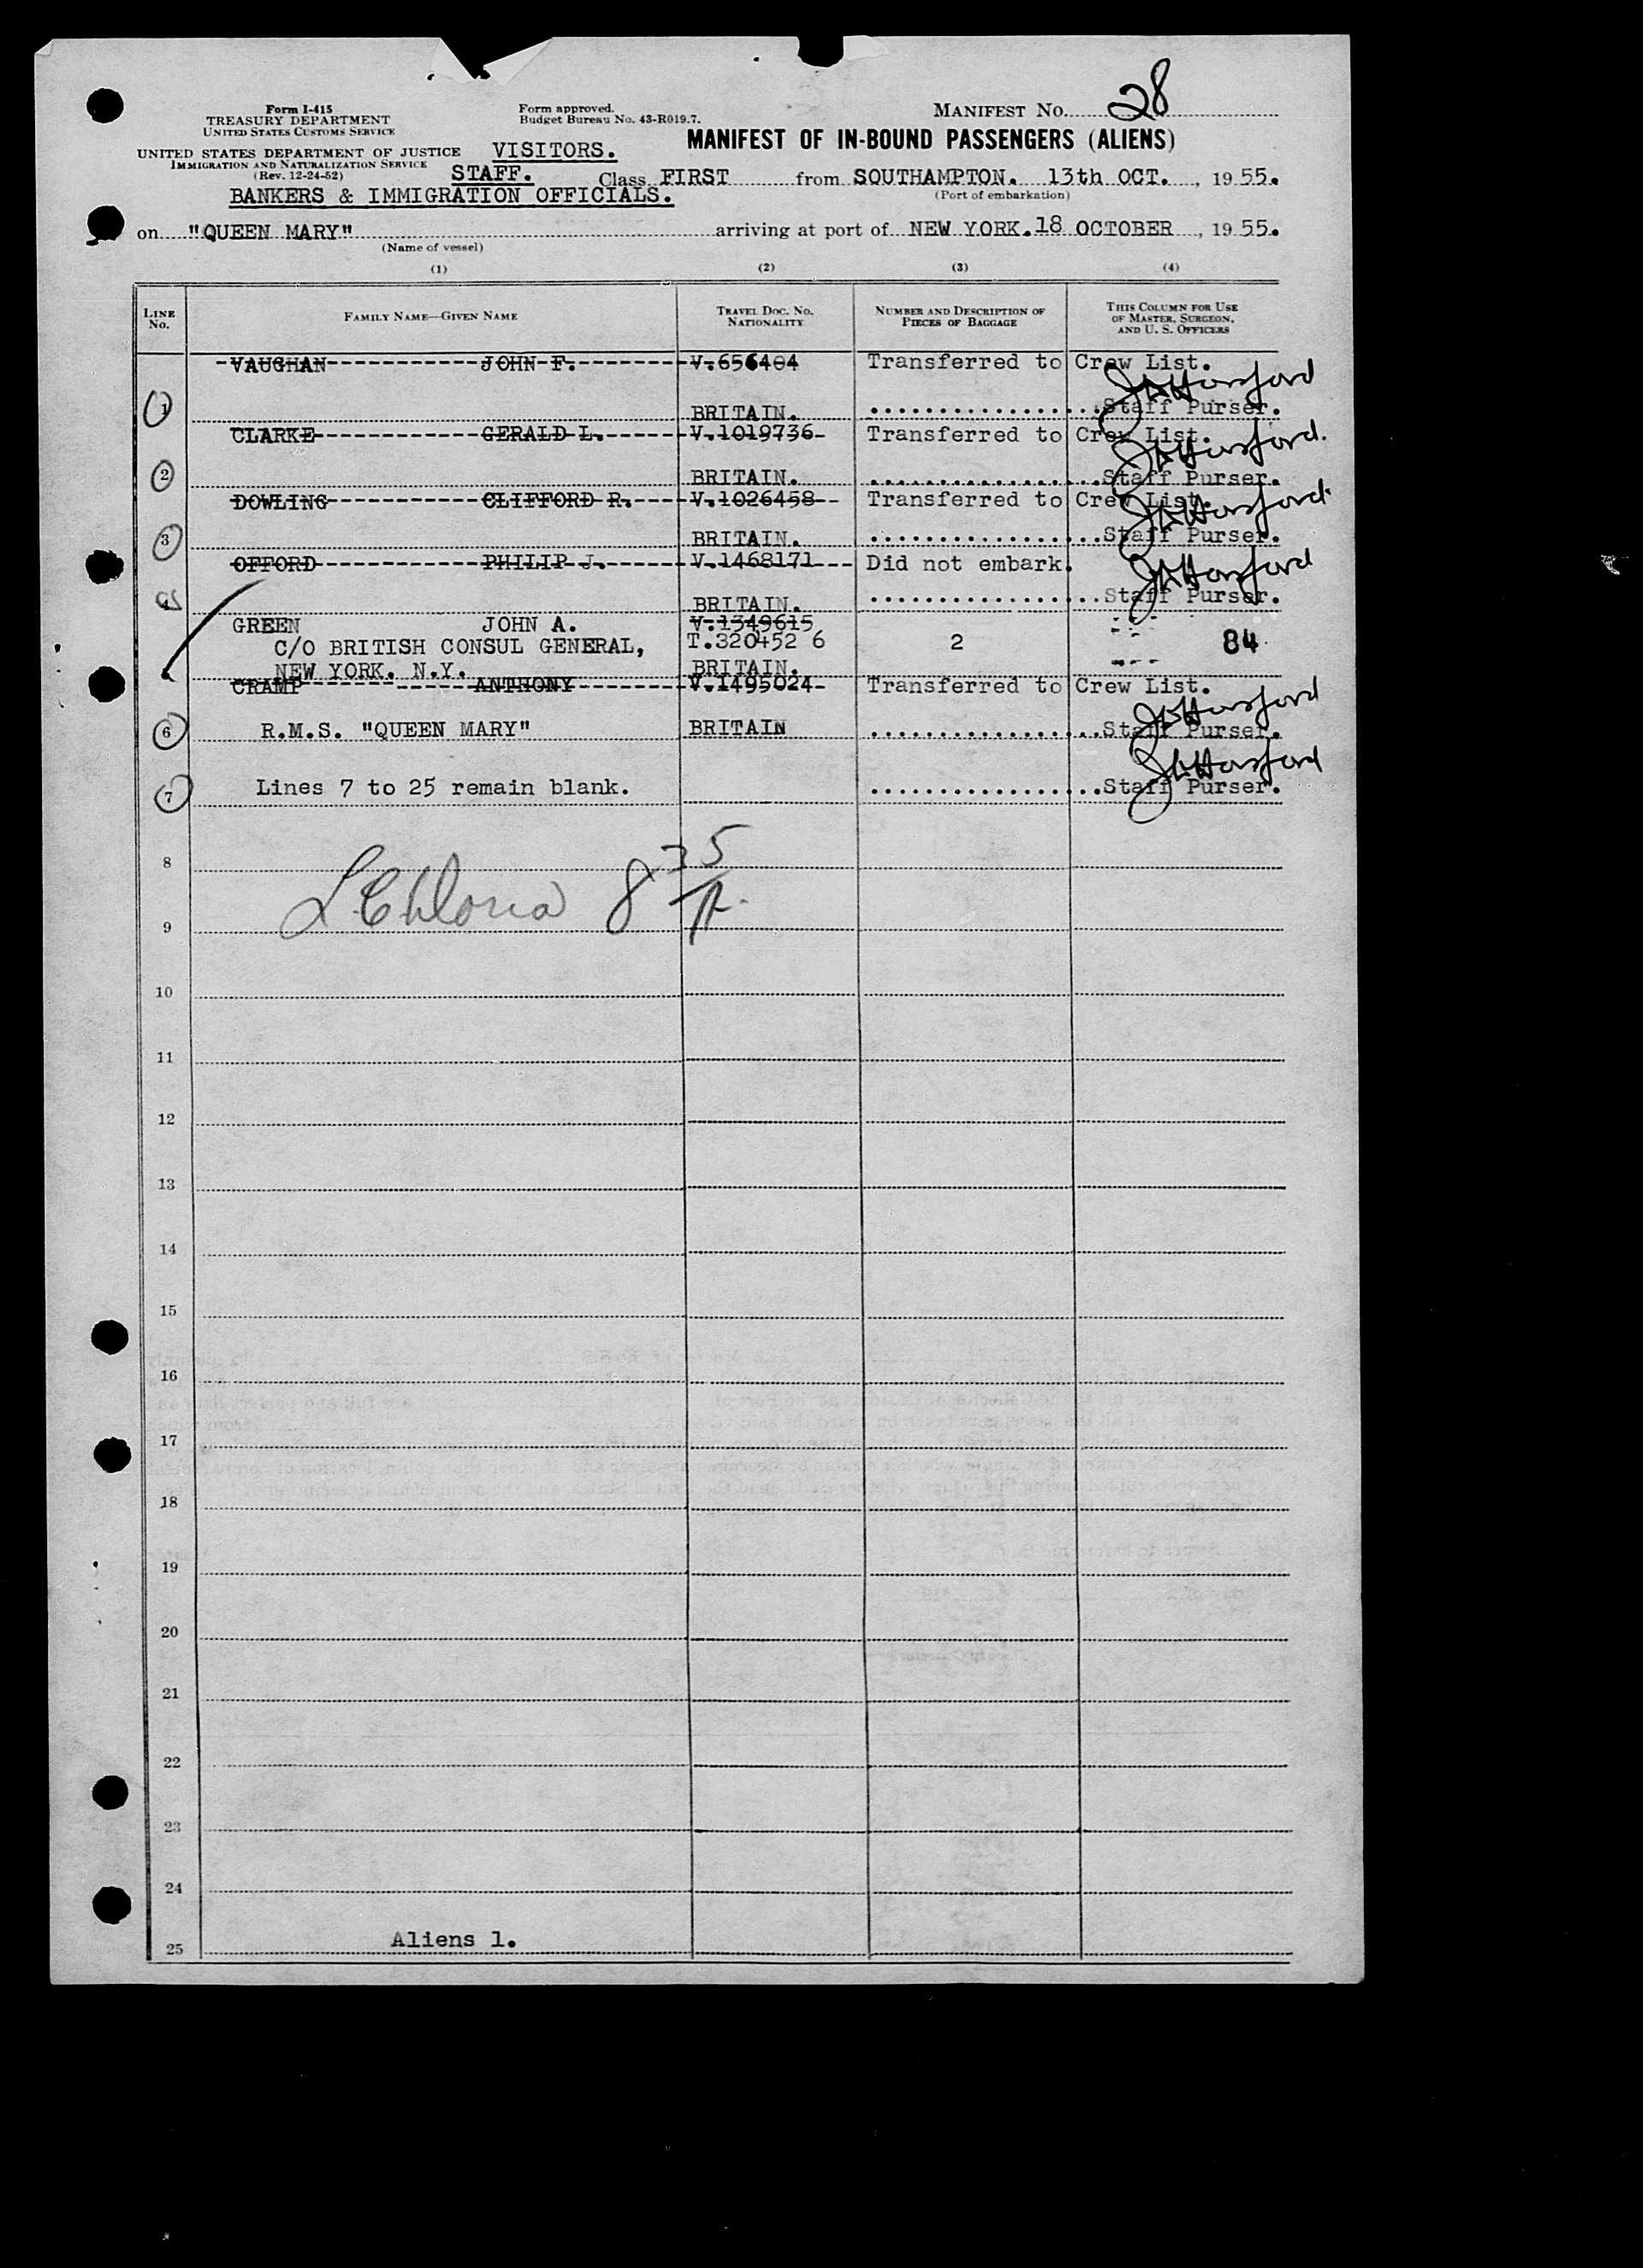 Form I-415
TREASURY DEPARTMENT
UNITED STATES CUSTOMS SERVICE
Form approved.
Budget Bureau No. 43-R019.7.
MANIFEST No. 28
MANIFEST OF IN-BOUND PASSENGERS (ALIENS)
UNITED STATES DEPARTMENT OF JUSTICE
IMMIGRATION AND NATURALIZATION SERVICE
(Rev. 12-24-52)
VISITORS.
STAFF.
BANKERS & IMMIGRATION OFFICIALS.
Class FIRST from SOUTHAMPTON. 13th OCT., 1955.
(Port of embarkation)
on "QUEEN MARY" arriving at port of NEW YORK. 18 OCTOBER, 1955.
(Name of vessel)
(1) (2) (3) (4)
LINE No. FAMILY NAME—GIVEN NAME TRAVEL DOC. NO. NATIONALITY NUMBER AND DESCRIPTION OF PIECES OF BAGGAGE THIS COLUMN FOR USE OF MASTER, SURGEON, AND U. S. OFFICERS
VAUGHAN JOHN F. V.656404 Transferred to Crew List.
1 BRITAIN. Staff Purser.
CLARKE GERALD L. V.1019736 Transferred to Crew List.
2 BRITAIN. Staff Purser.
DOWLING CLIFFORD R. V.1026458 Transferred to Crew List.
3 BRITAIN. Staff Purser.
OFFORD PHILIP J. V.1468171 Did not embark.
4 BRITAIN. Staff Purser.
GREEN JOHN A. V.1349615
C/O BRITISH CONSUL GENERAL, T.320452 6 2 84
NEW YORK. N.Y. BRITAIN.
CRAMP ANTHONY V.1495024 Transferred to Crew List.
6 R.M.S. "QUEEN MARY" BRITAIN Staff Purser.
7 Lines 7 to 25 remain blank. Staff Purser.
8
9
10
11
12
13
14
15
16
17
18
19
20
21
22
23
24
25 Aliens 1.